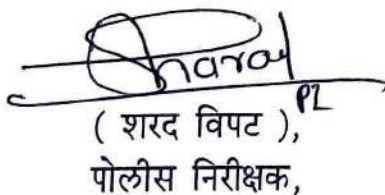 Sharad
PI
( शरद विपट ),
पोलीस निरीक्षक,